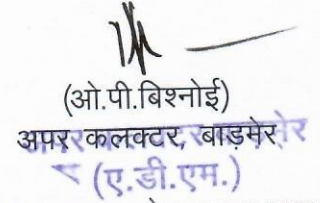 (ओ.पी.बिश्नोई)
अपर कलक्टर, बाड़मेर
(ए.डी.एम.)